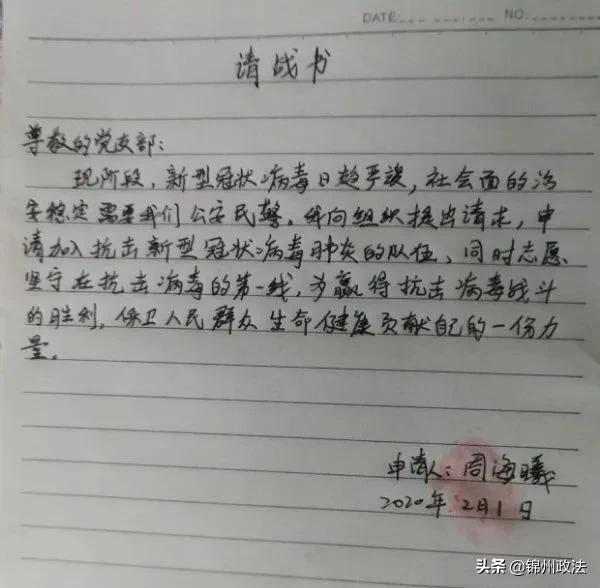 DATE: NO.
请战书
尊敬的党支部:
现阶段,新型冠状病毒日趋严峻,社会面的治
安稳定需要我们公安民警。我向组织提出请求,申
请加入抗击新型冠状病毒肺炎的队伍,同时志愿
坚守在抗击病毒的第一线,为赢得抗击病毒战斗
的胜利,保卫人民群众生命健康贡献自己的一份力
量。
申请人:周海曦
2020年2月1日
头条@锦州政法